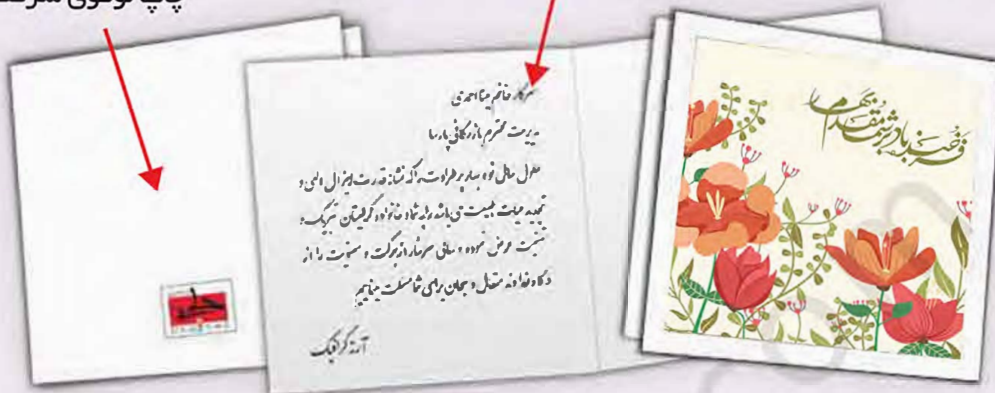 چاپ لوگوی
سرکار خانم مینا احمدی
مدیریت محترم بازرگانی پارسا
حلول سال نو و بهار پر طراوت را که نشانه قدرت لایزال الهی و
تجدید حیات طبیعت می باشد را به شما و خانواده گرامیتان تبریک و
تهنیت عرض نموده و سالی سرشار از برکت و معنویت را از
درگاه خداوند متعال و سبحان برای شما مسئلت مینماییم
آرته گرافیک
فرخنده باد بر شما مقدم بهار